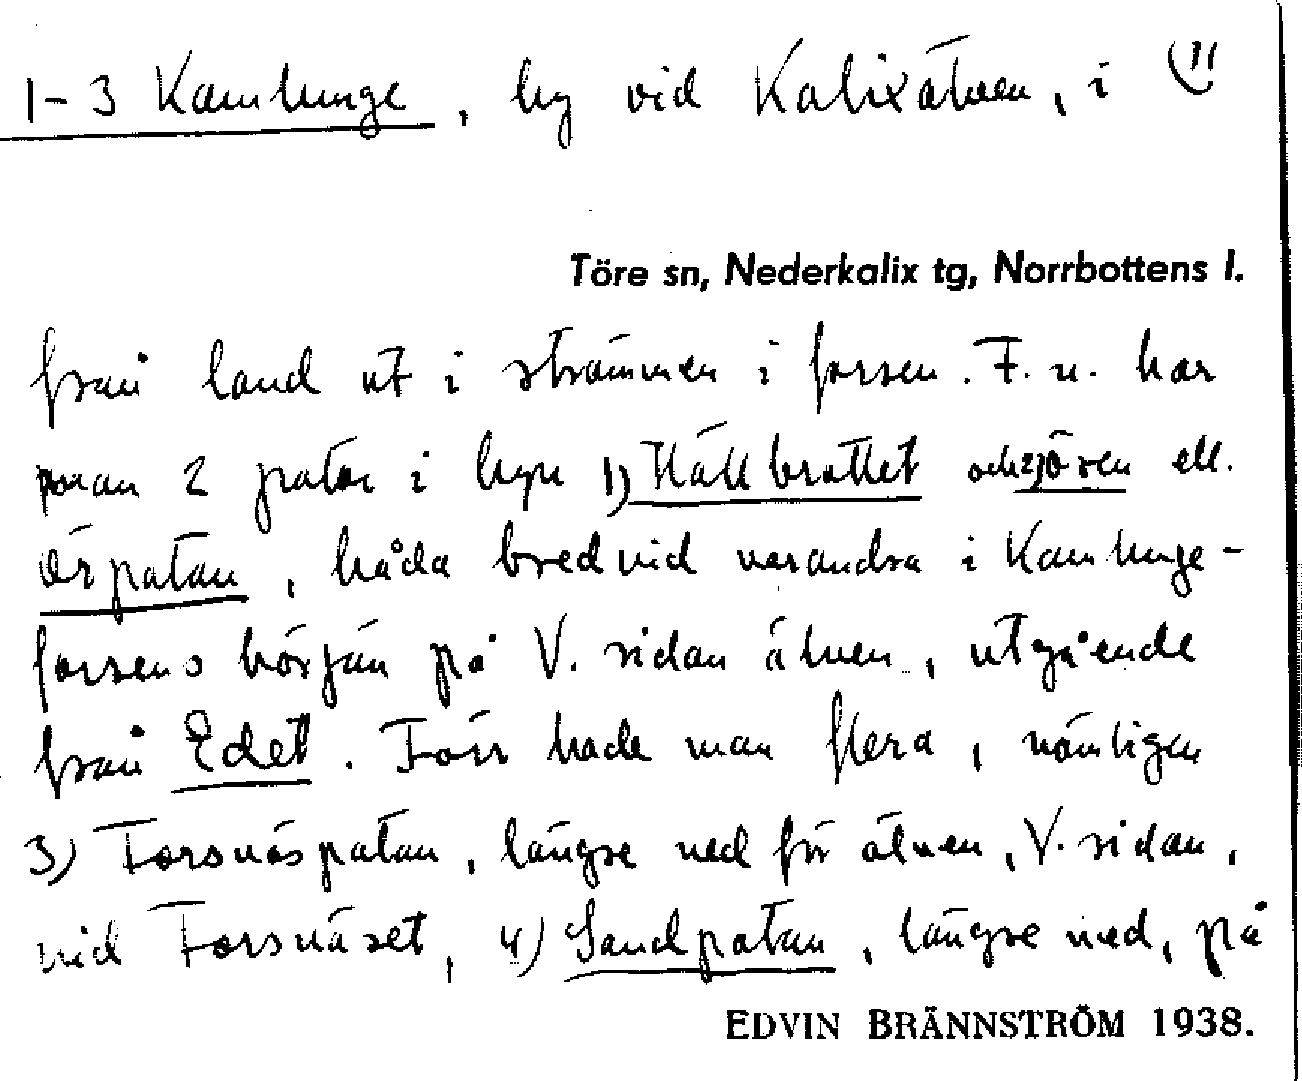 1-3 Kamlunge, by vid Kalixälven, i
Töre sn, Nederkalix tg, Norrbottens l.
från land ut i strömmen i forsen. F. n. har
man 2 pator i byn 1) Hällbrottet och 2)
ell.
Örpatan, båda bredvid varandra i Kamlunge-
forsens början på V. sidan älven, utgående
från Edet. Förr hade man flera, nämligen
3) Forsnäspatan, längre ned för älven, V. sidan,
vid Forsnäset, 4) Sandpatan, längre ned, på
EDVIN BRÄNNSTRÖM 1938.